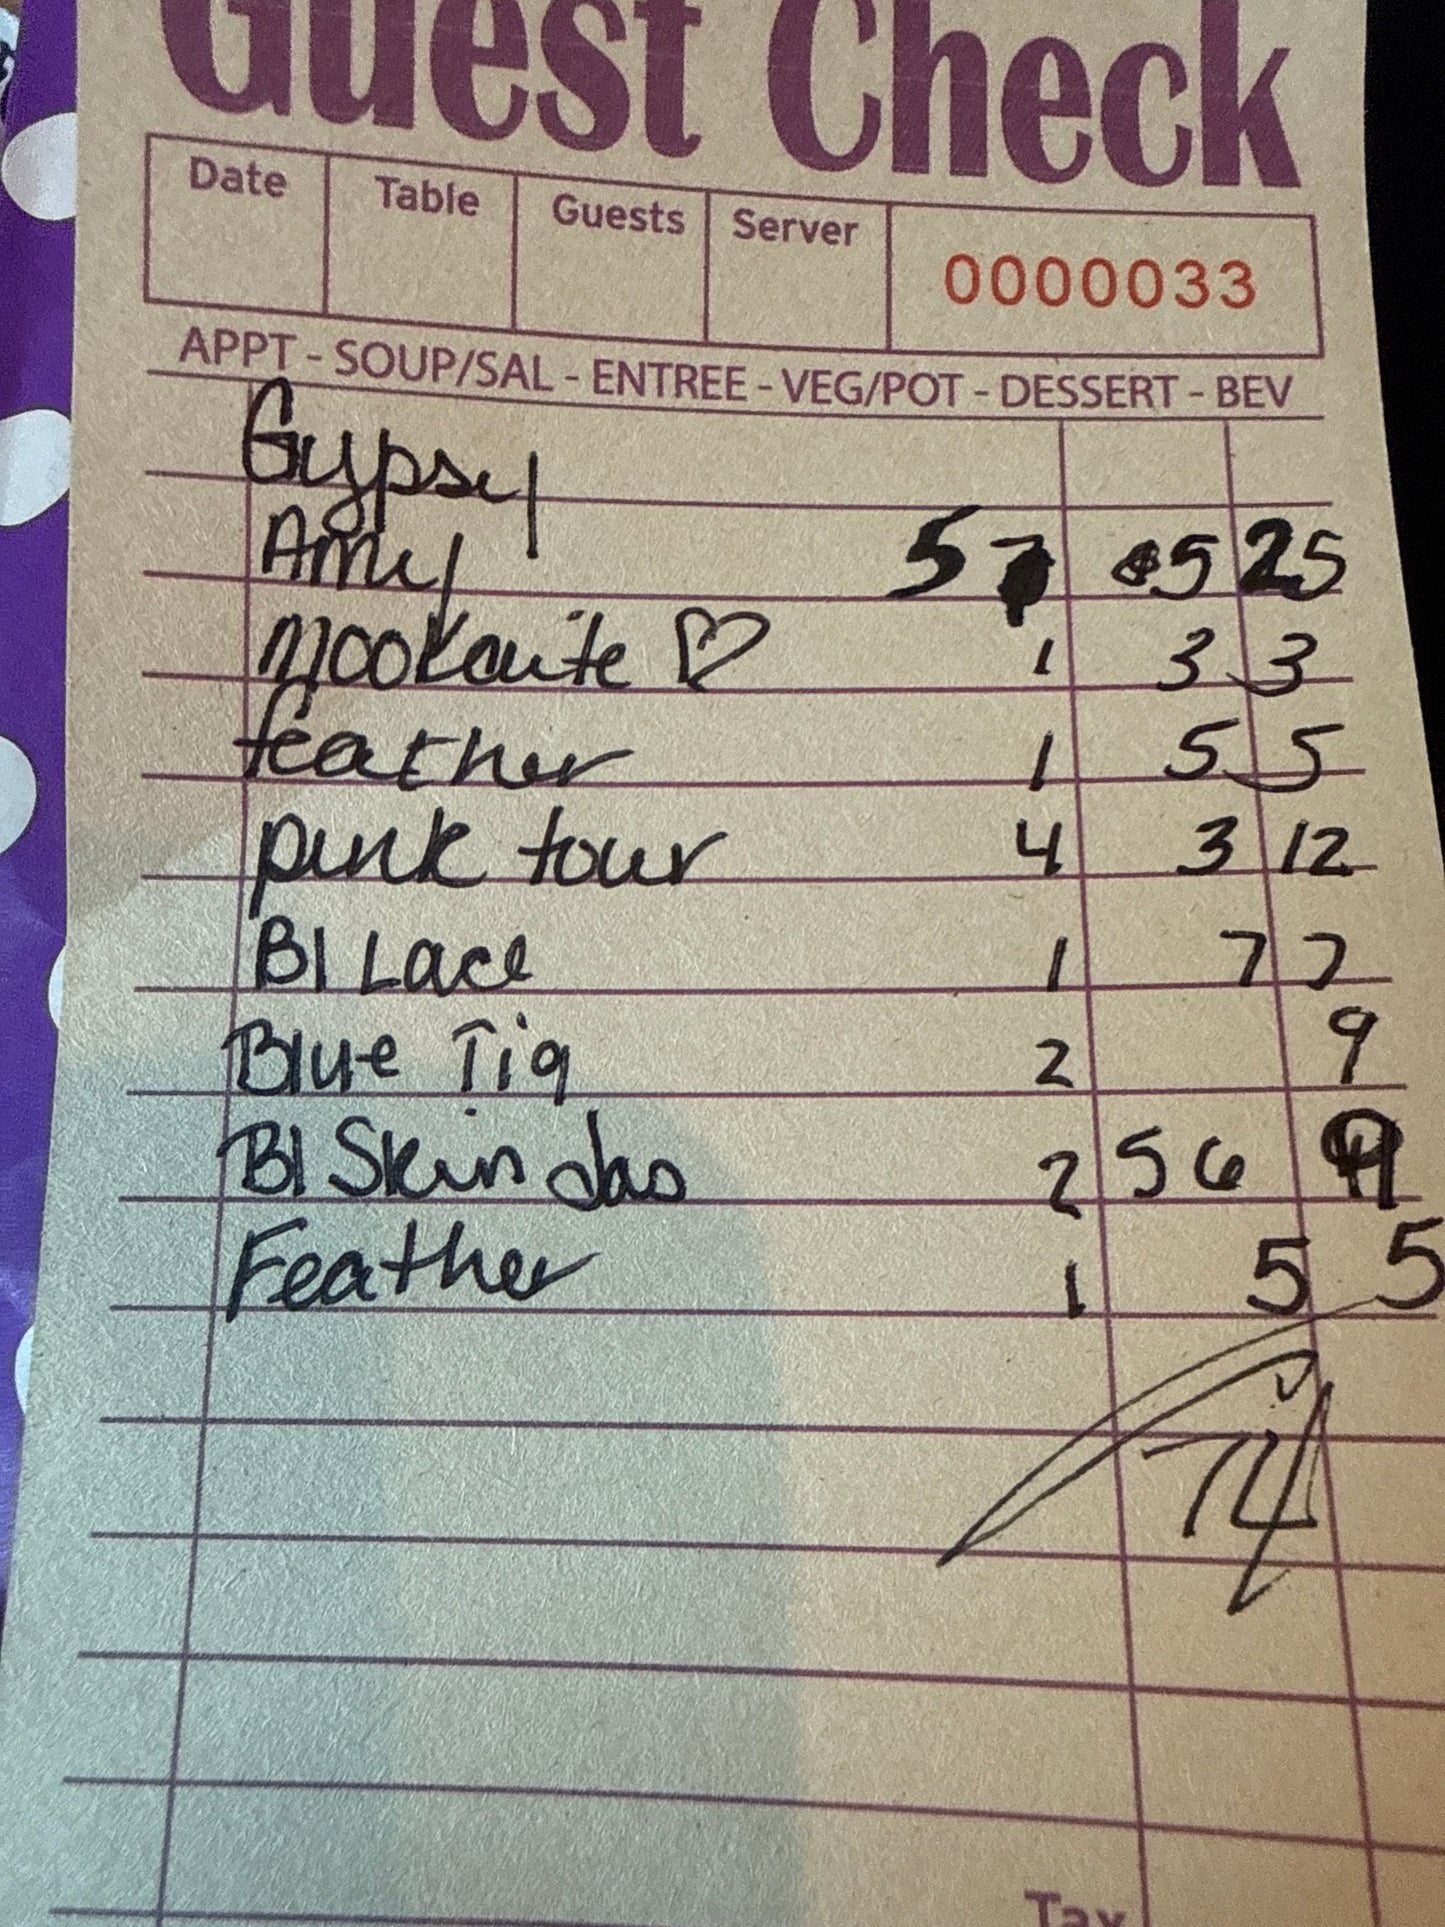 Guest Check
Date Table Guests Server 0000033
APPT - SOUP/SAL - ENTREE - VEG/POT - DESSERT - BEV
Gypsy
Amy 5 5 25
Mookaite ♡ 1 3 3
feather 1 5 5
pink tour 4 3 12
Bl Lace 1 7 7
Blue Tig 2 9
Bl Skin Jas 2 5 6
Feather 1 5 5
74
Tax